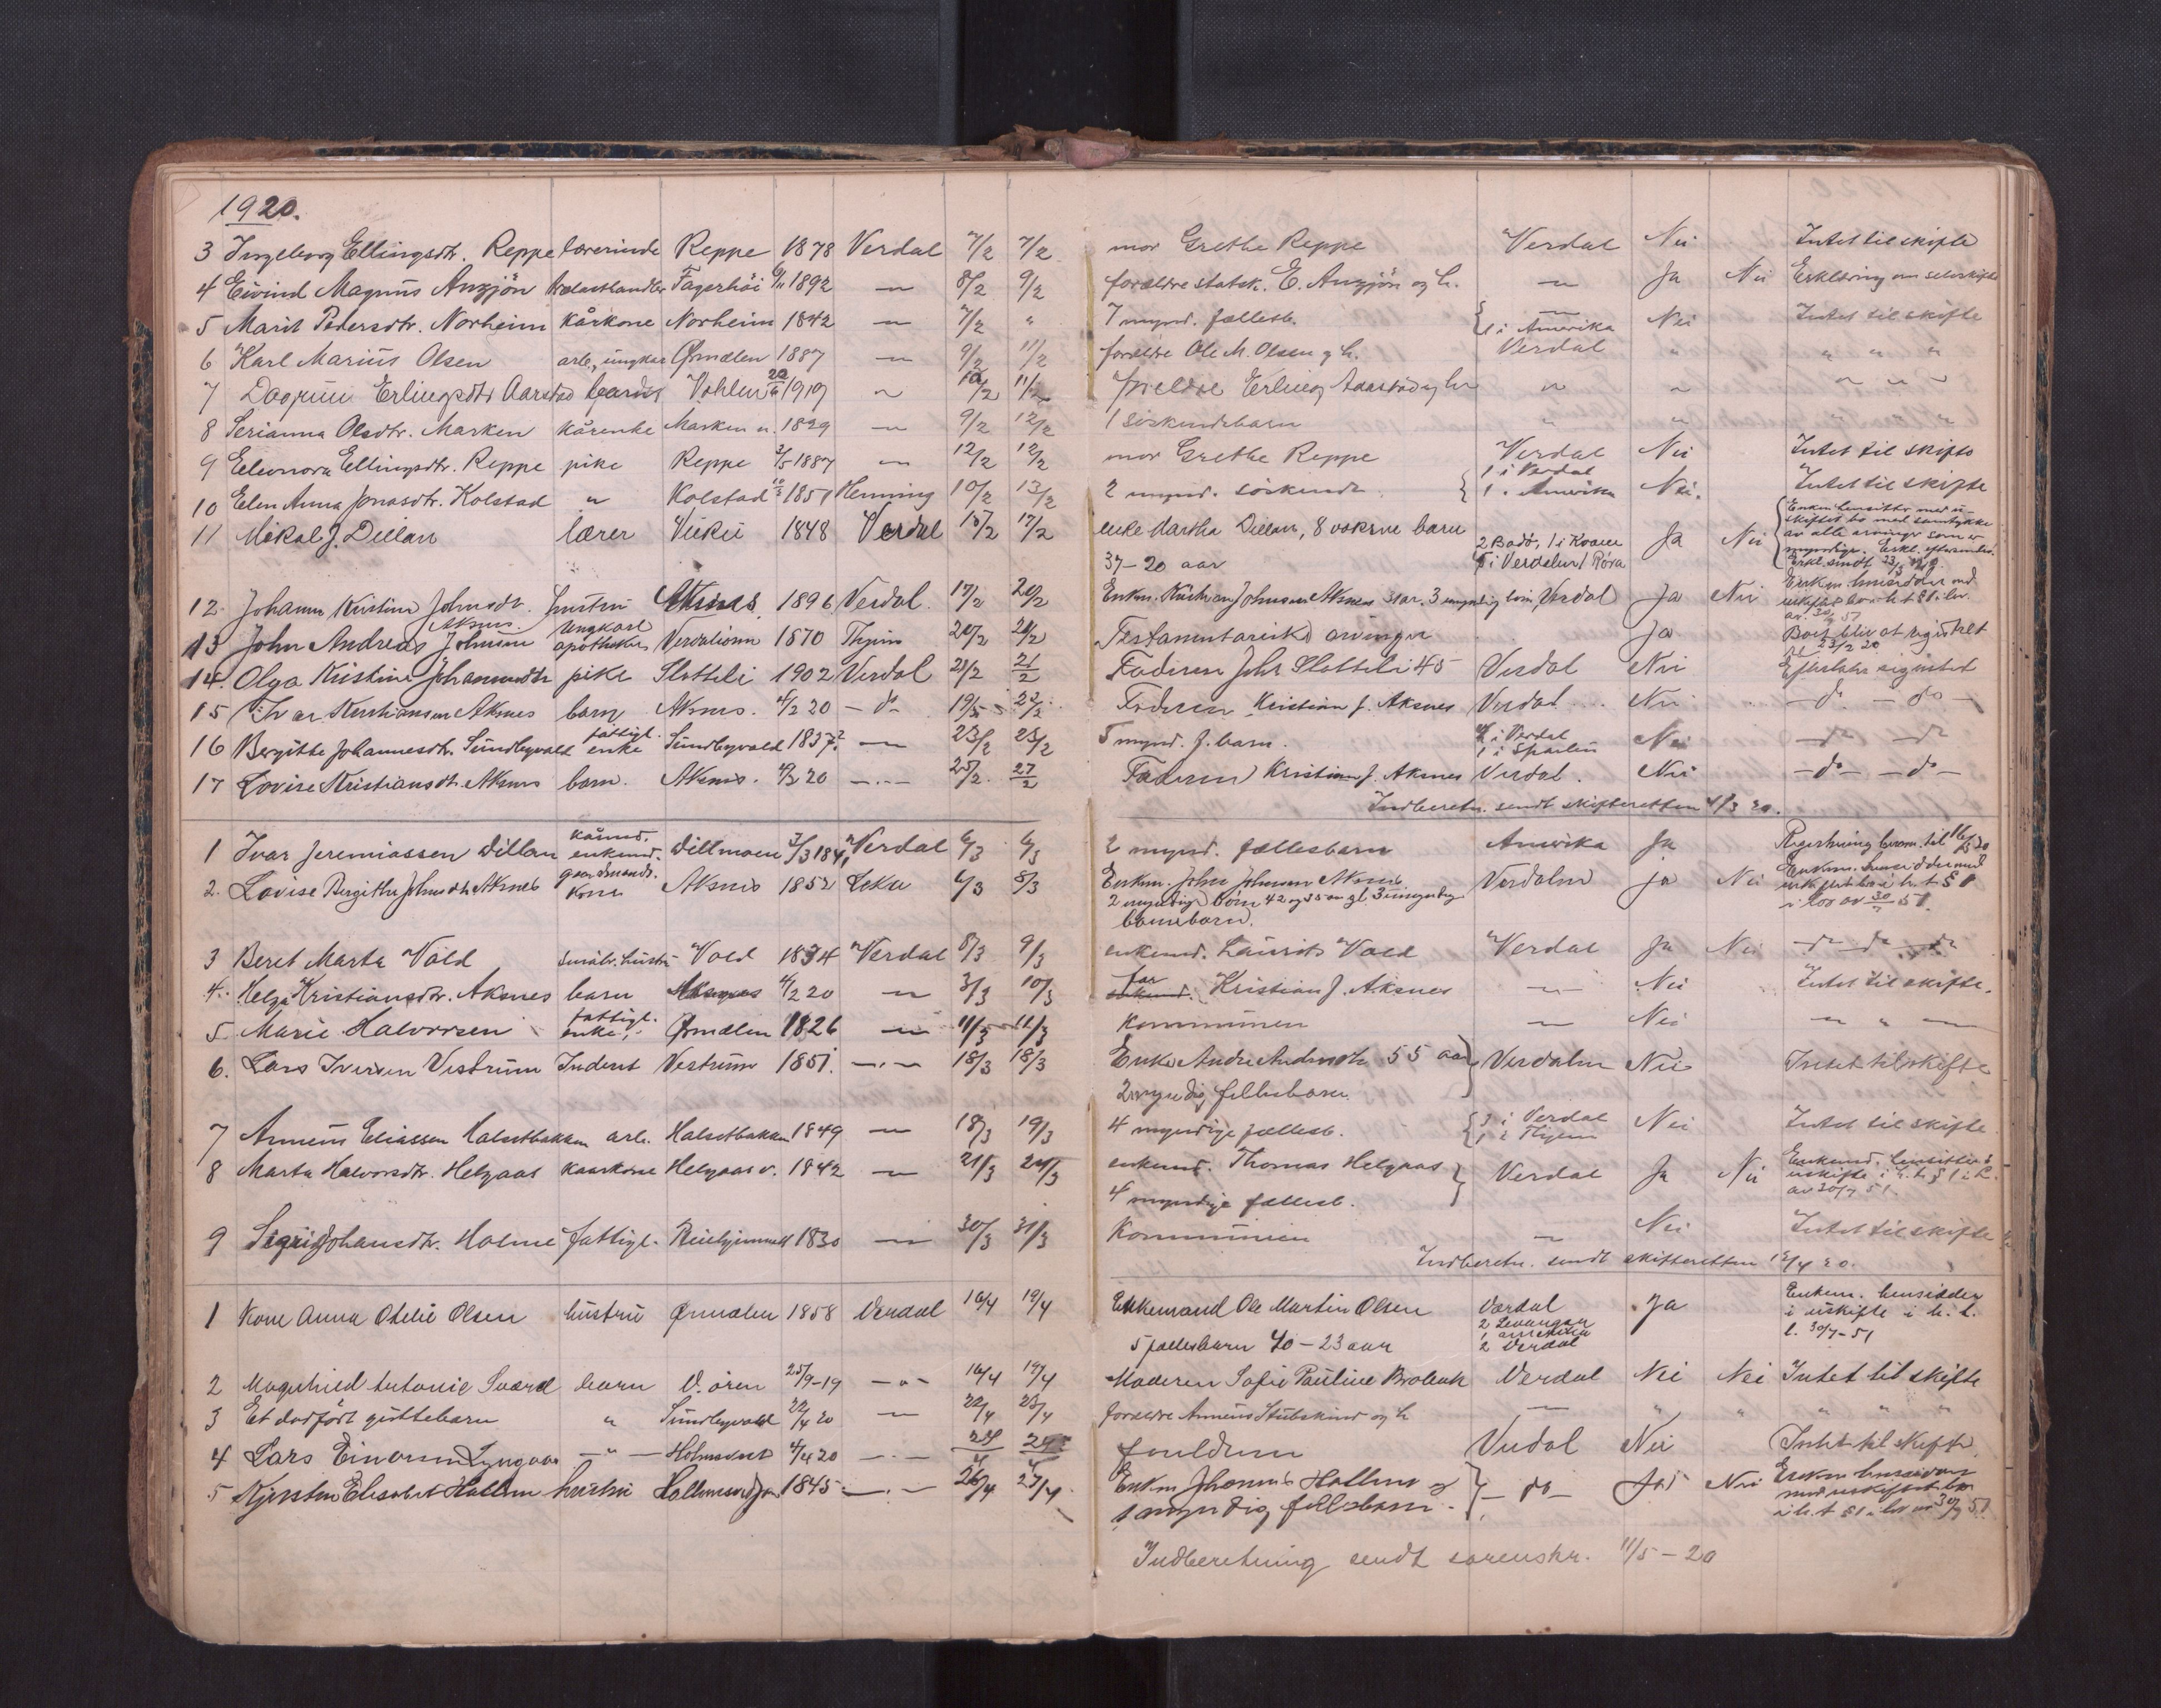 1920.
3 Ingeborg Ellingsdtr. Reppe lærerinde Reppe 1878 Verdal 7/2 7/2 mor Grethe Reppe Verdal Nei Intet til skifte
4 Eivind Magnus Anzjön Fagerhöi 6/11 1892 — 8/2 9/2 forældre statsk. E. Anzjön og h. — Ja Nei Erklæring om selvskifte
5 Marit Pedersdtr. Norheim kårkone Norheim 1842 — 7/2 " 7 mynd. fællesb. { — 1 i Amerika Nei Intet til skifte
6 Karl Marius Olsen arb., ungkar Ørmelen 1887 — 9/2 11/2 forældre Ole M. Olsen og h. Verdal " " " "
7 Dagrun Erlingsdtr Aarstad 1919 ~ 10/2 11/2 Erling Aarstad og h " ~ " " "
8 Serianna Olsdtr. Marken kårenke Marken n. 1829 — 9/2 12/2 1 söskendebarn " " " " "
9 Eleonora Ellingsdtr. Reppe pike Reppe 2/5 1887 — 12/2 12/2 mor Grethe Reppe Verdal Nei Intet til skifte
10 Elen Anna Jonasdtr. Kolstad " Kolstad 1851 Henning 10/2 13/2 2 mynd. söskende { 1 i Verdal 1 i Amerika Nei. Intet til skifte
11 Mikal J. Dillan lærer Vuku 1848 Verdal 15/2 17/2 enke Martha Dillan, 8 voksne barn
37-20 aar 2 Bodö, 1 i 5 i Verdalen 1 Röra Ja Nei { Enken hensitter med u-
skiftet bo med samtykke
av alle arvinger som er
myndige.
12. Johanna Kristine Johnsdt. Aksnes. hustru Aksnes 1896 Verdal. 17/2 20/2 Enkm. Kristian Johnsen Aksnes 31 ar. 3 Verdal Ja Nei
13 John Andreas Johnsen ungkarl apotheker Verdalsøren 1870 20/2 20/2 Testamentariske arvinger Ja 23/2 20
14. Olga Kristine Johannesdtr pike Slotteli 1902 Verdal 21/2 21/2 Faderen Johs Slotteli 45 Verdal Nei
15 Kristiansen Aksnes barn Aksnes. 4/2 20 — do — 19/2 22/2 Faderen Kristian J. Aksnes Verdal Nei — do — do —
16 Bergitte Johannesdtr. Sundbyvald fattigl. enke Sundbyvald 1837? — 23/2 23/2 5 mynd. f. barn. 4 i Verdal 1 i Sparbu Nei — do — do
17 Lovise Kristiansdtr. Aksnes barn. Aksnes. 4/2 20 —"— 25/2 27/2 Faderen Kristian J. Aksnes Verdal. Nei — do — — do —
Indberetn. sendt skifteretten 4/3 20.
1 Ivar Jeremiassen Dillan kårmd. enkemd. Dillmoen 3/3 1841 Verdal 6/3 6/3 2 mynd. fællesbarn Amerika Ja
2. Lovise Bergithe Johnsdtr Aksnes gaardmands. kone Aksnes 1852 Leka 6/3 8/3 Enkm. John Johnsen Aksnes Verdalen ja Nei
2 myndige börn 42 og 35 aar gl. 3 umyndige
barnebarn.
3 Beret Marta Vold småbr. hustru Vold 1834 Verdal 8/3 9/3 enkemd. Laurits Vold Verdal Ja Nei — do — do — do
4. Helga Kristiansdtr. Aksnes barn Aksnes 4/2 20 — 3/3 10/3 far Kristian J. Aksnes — Nei Intet til skifte.
5 Marie Halvorsen fattigl. enke, Ørmelen 1826 — 11/3 11/3 Kommunen — Nei — " —
6. Lars Iversen Vestrum Inderst Vestrum 1851. —"— 18/3 18/3 Enke 55 aar } Verdalen Nei Intet til skifte
2 myndig fellesbarn.
7 Anneus Eliassen Halsetbakken arb. Halsetbakken 1849 — 18/3 19/3 4 myndige fællesb. { 3 i Verdal 1 i Nei Intet til skifte
8 Marta Halvorsdtr. Helgaas kaarkone Helgaas v. 1842 — 21/3 24/3 enkemd. Thomas Helgaas } Verdal Ja Nei Enkemd. hensitter i
uskifte i h. t. § 1 i l.
av 30/7 51.
4 myndige fællesb.
9 Sigrid Johansdtr. Holme fattigl. 1830 — 30/3 31/3 Kommunen — Nei Intet til skifte
Indberetn. sendt skifteretten 12/4 20.
1 Kone Anna Otelie Olsen hustru Ørmelen 1858 Verdal 16/4 19/4 Enkemand Ole Martin Olsen Værdal Ja Enkem. hensidder
i uskifte i h. t.
l. 30/7-51
5 fællesbarn 40-23 aar 2 Levanger 1 amerika 2 Verdal
2 Magnhild Antonie Sværd barn V. ören 25/9-19 —"— 16/4 19/4 Moderen Sofie Pauline Brobak Verdal Nei Nei Intet til skifte
3 Et dødfödt guttebarn " Sundbyvald 22/4 20 — 22/4 23/4 forældre Anneus Stubskind og h — " " " " "
4 Lars Einarsen Lyngaas —"— Holmsveet 4/4 20 —"— 24/4 24/4 foreldrene Verdal Nei Intet til skifte.
5 Kjersten Elisabet Hallem hustru 1845 —"— 26/4 27/4 Enkm Johannes Hallem og } — do — Ja Nei Enkem hensidder
med uskiftet bo
i h. t § 1 i lov av 30/7 51
1 myndig fellesbarn.
Indberetning sendt sorenskr. 11/5-20